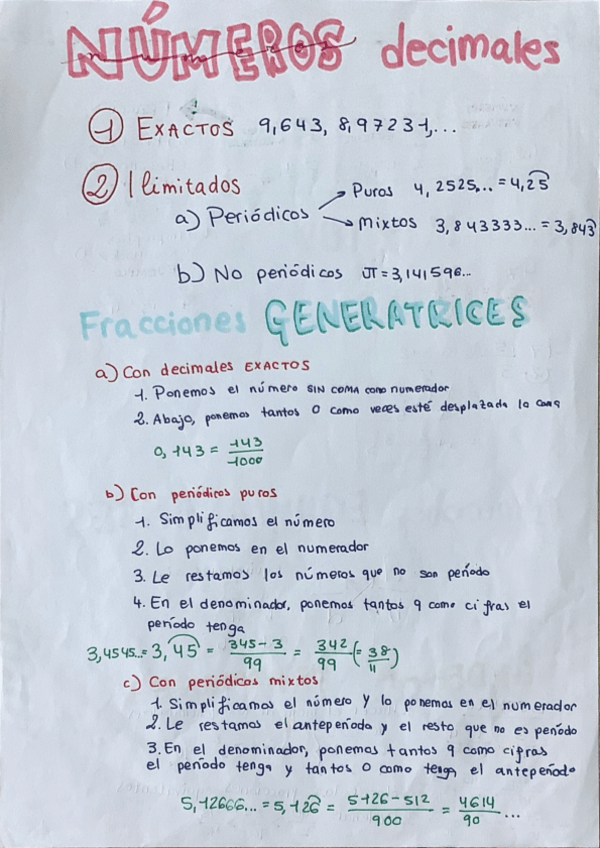 NÚMEROS decimales
① EXACTOS 9,643, 8,97231,...
② Ilimitados
a) Periódicos → Puros 4,2525... = 4,2͡5
→ Mixtos 3,843333... = 3,843̑
b) No periódicos π = 3,141596...
Fracciones GENERATRICES
a) Con decimales EXACTOS
1. Ponemos el número SIN COMA como numerador
2. Abajo, ponemos tantos 0 como veces esté desplazada la coma
0,143 = 143/1000
b) Con periódicos puros
1. Simplificamos el número
2. Lo ponemos en el numerador
3. Le restamos los números que no son período
4. En el denominador, ponemos tantos 9 como cifras el
período tenga
3,4545... = 3,4͡5 = 345-3/99 = 342/99 (= 38/11)
c) Con periódicos mixtos
1. Simplificamos el número y lo ponemos en el numerador
2. Le restamos el anteperíodo y el resto que no es período
3. En el denominador, ponemos tantos 9 como cifras
el período tenga y tantos 0 como tenga el anteperíodo
5,12666... = 5,126̑ = 5126-512/900 = 4614/90 ...